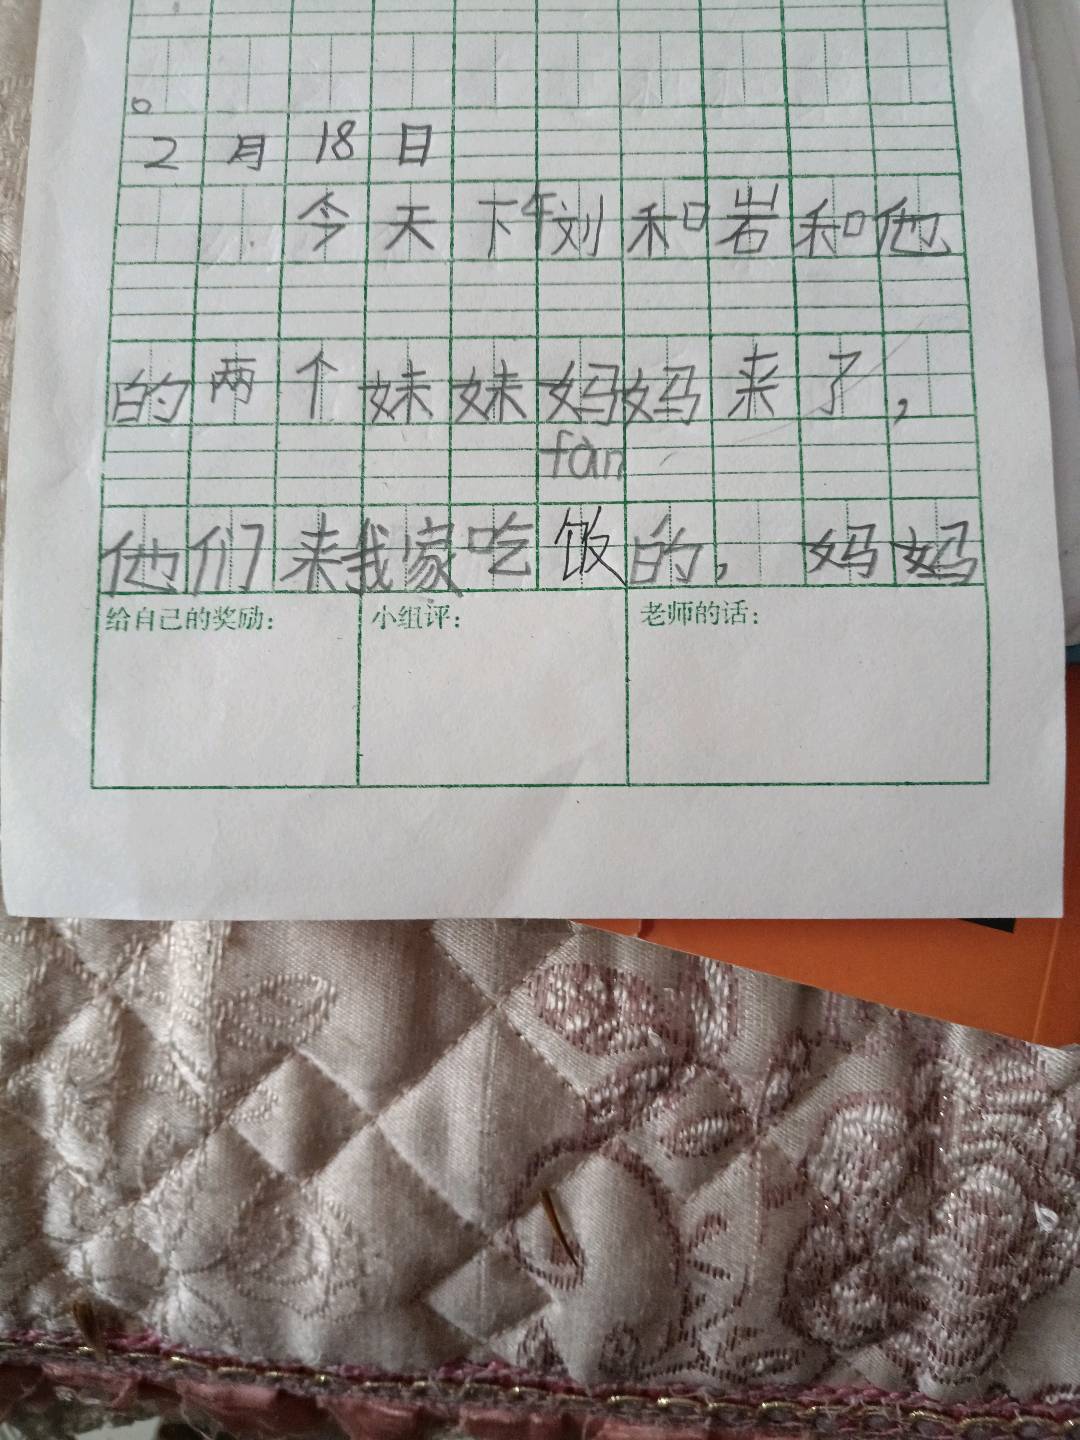 。
2月18日
今天下午刘和岩和他
的两个妹妹妈妈来了，
fàn
他们来我家吃饭的，妈妈
给自己的奖励： 小组评： 老师的话：